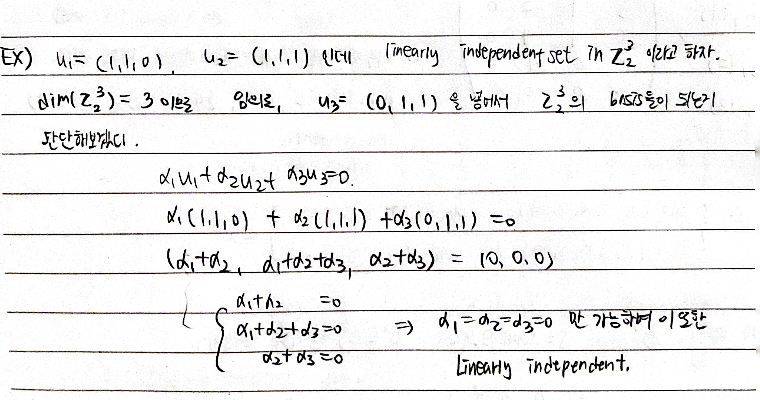 EX) u₁= (1,1,0), u₂= (1,1,1) 인데 linearly independent set in Z₂³ 이라고 하자.
dim(Z₂³) = 3 이므로 임의로, u₃= (0,1,1) 을 넣어서 Z₂³의 basis들이 되는지
판단해보겠다.
α₁u₁+α₂u₂+ α₃u₃=0.
α₁(1,1,0) + α₂(1,1,1) +α₃(0,1,1) =0
(α₁+α₂, α₁+α₂+α₃, α₂+α₃) = (0,0,0)
α₁+α₂ =0
α₁+α₂+α₃=0 ⇒ α₁=α₂=α₃=0 만 가능하며 이 또한
α₂+α₃=0 Linearly independent.